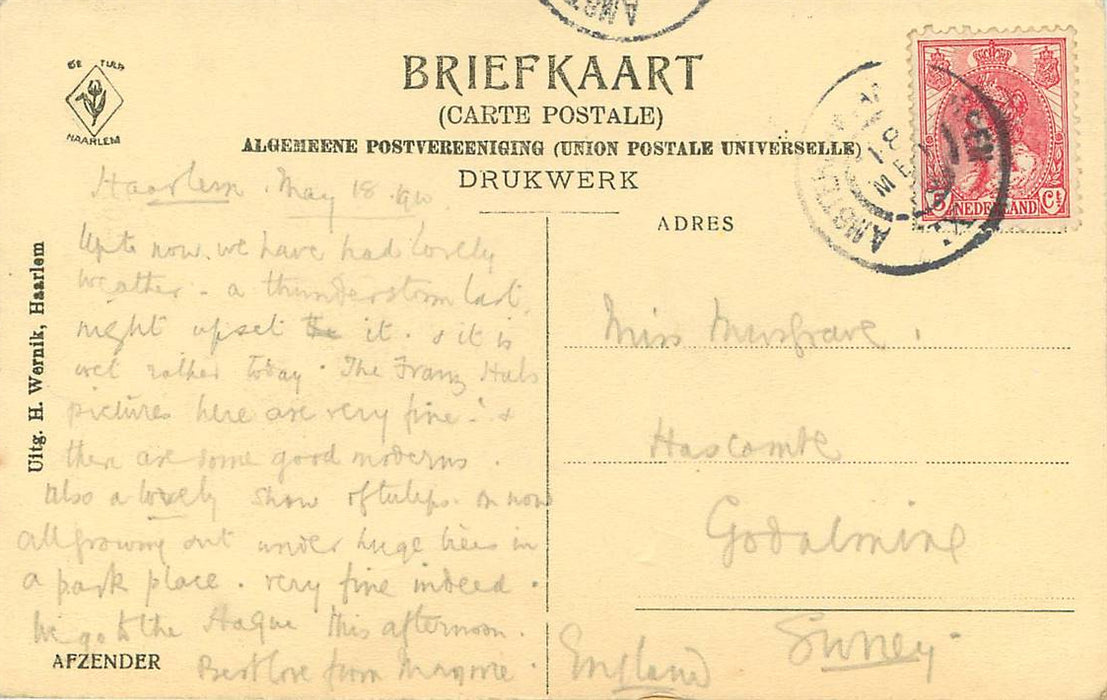 AMST
BRIEFKAART
(CARTE POSTALE)
ALGEMEENE POSTVEREENIGING (UNION POSTALE UNIVERSELLE)
DRUKWERK
DE TULP
HAARLEM
Uitg. H. Wernik, Haarlem
Haarlem . May 18. 1910
Up to now. we have had lovely
weather - a thunderstorm last
night upset it. & it is
wet rather today. The Franz Hals
pictures here are very fine. &
there are some good moderns.
Also a lovely show of tulips on now
all growing out under huge trees in
a park place. very fine indeed.
We go to the Hague this afternoon.
Best love from Marjorie.
AFZENDER
ADRES
Miss Musgrave.
Hascombe
Godalming
Surrey.
England
5 NEDERLAND Ct
AMSTERDAM
18 MEI